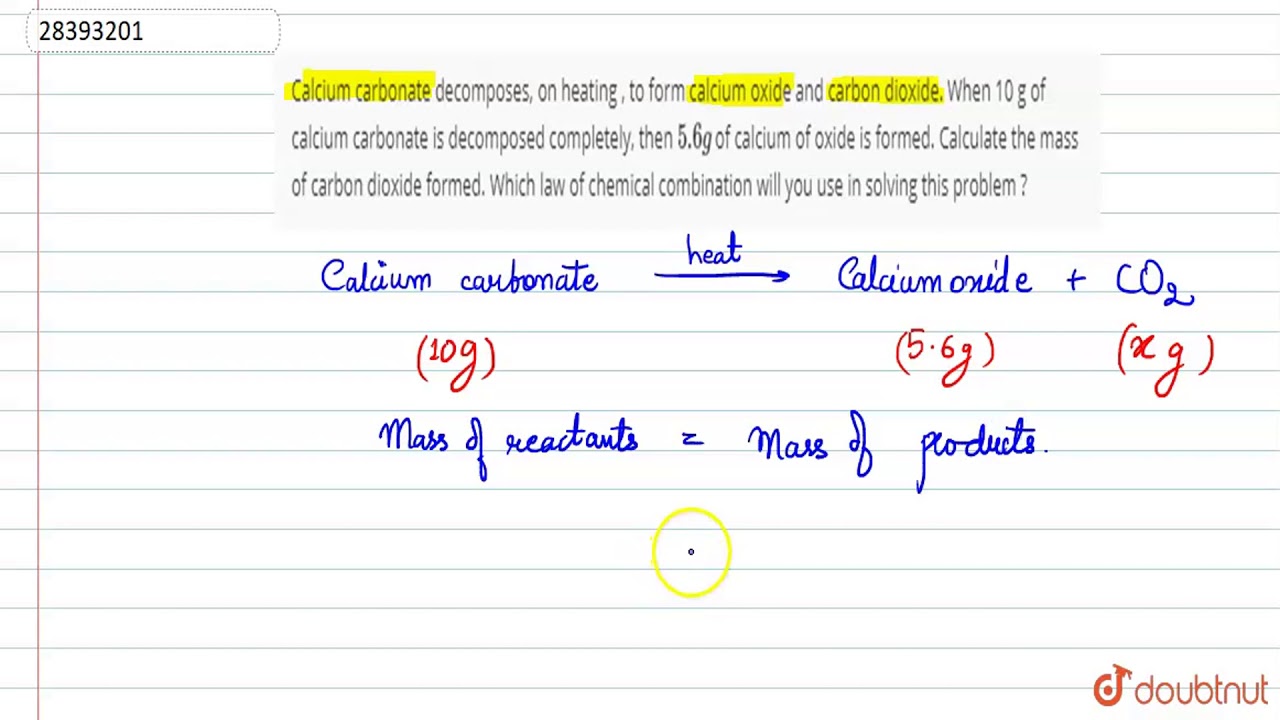 28393201
Calcium carbonate decomposes, on heating , to form calcium oxide and carbon dioxide. When 10 g of
calcium carbonate is decomposed completely, then 5.6g of calcium of oxide is formed. Calculate the mass
of carbon dioxide formed. Which law of chemical combination will you use in solving this problem ?
heat
Calcium carbonate → Calcium oxide + CO2
(10g) (5.6g) (x g)
Mass of reactants = Mass of products.
doubtnut